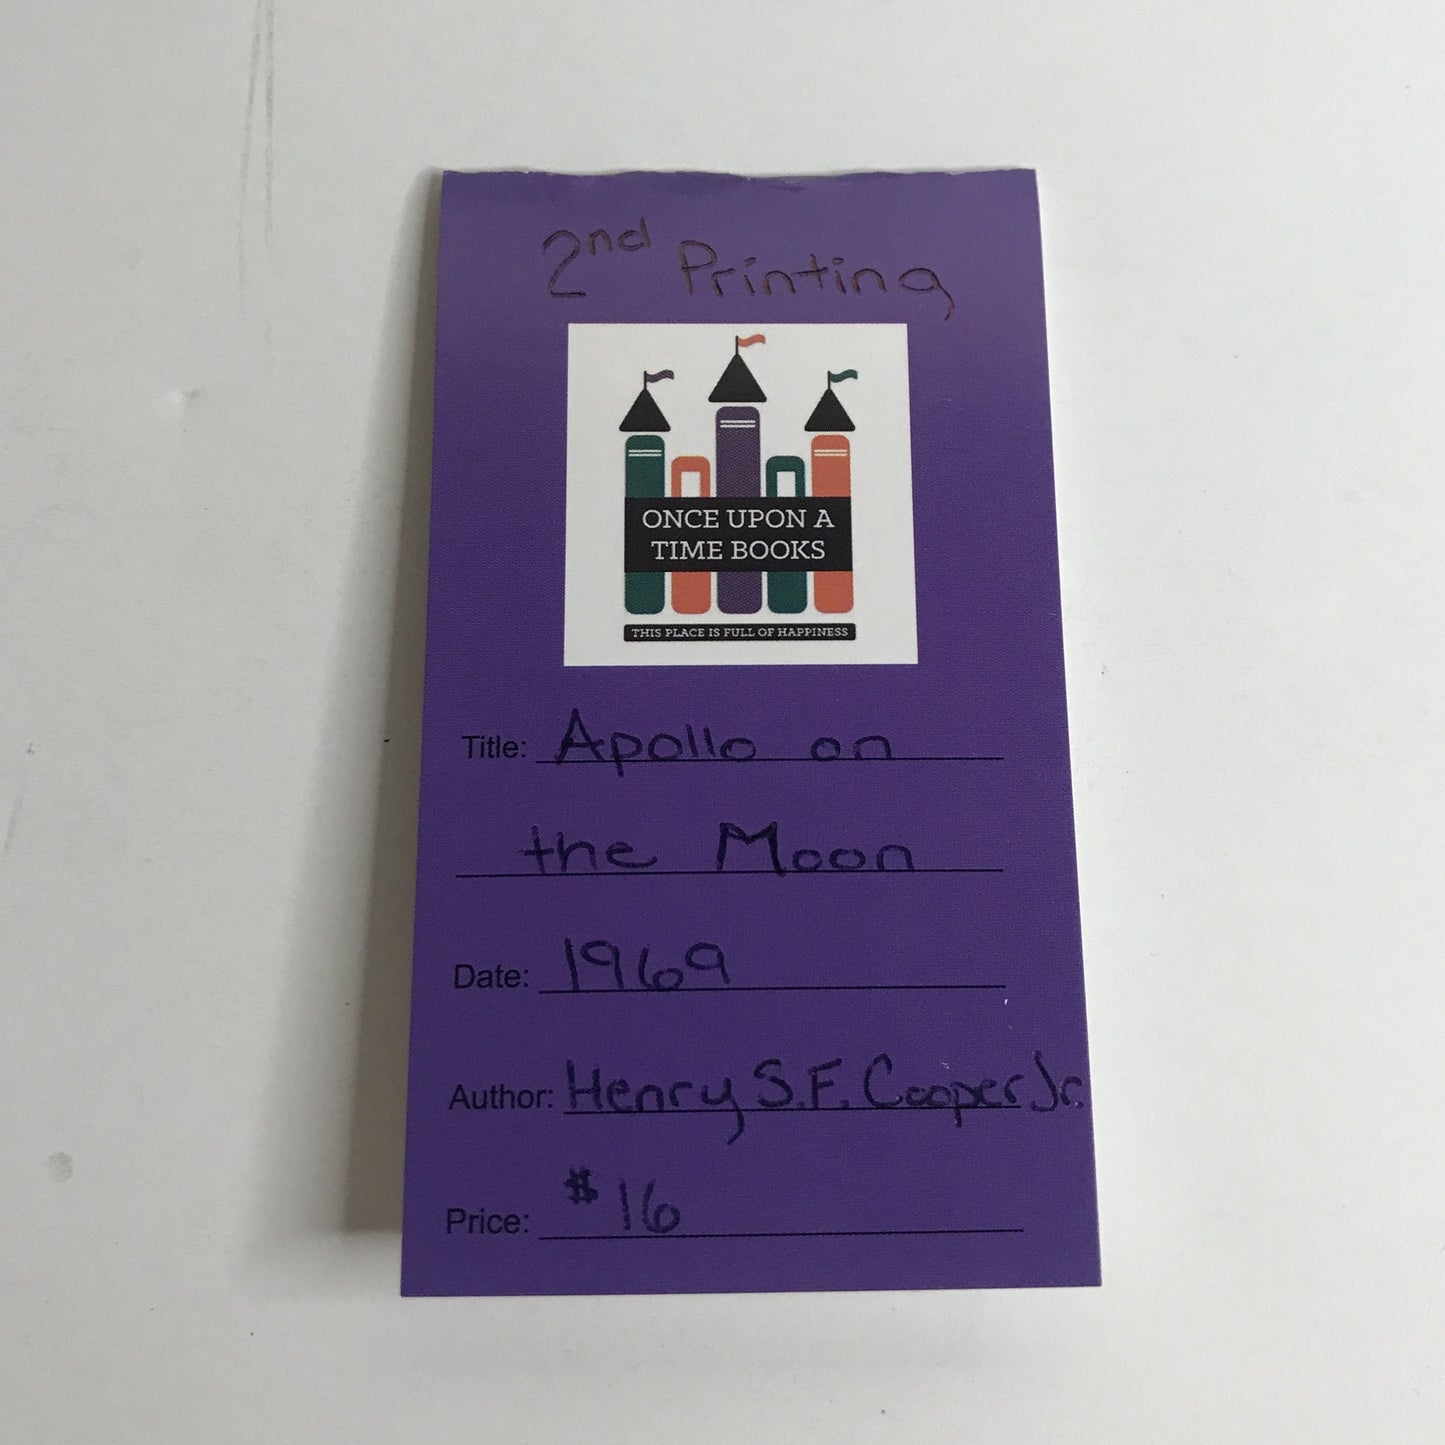 2nd Printing
ONCE UPON A
TIME BOOKS
THIS PLACE IS FULL OF HAPPINESS
Title: Apollo on
the Moon
Date: 1969
Author: Henry S.F. Cooper Jr.
Price: $16